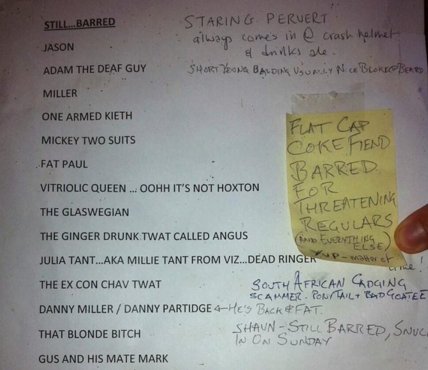 STILL...BARRED
STARING PERVERT
always comes in @ crash helmet
& drinks ale.
JASON
ADAM THE DEAF GUY
SHORT YOUNG BALDING USUALLY NICE BLOKE & BEARD
MILLER
ONE ARMED KIETH
MICKEY TWO SUITS
FAT PAUL
VITRIOLIC QUEEN ... OOHH IT'S NOT HOXTON
THE GLASWEGIAN
THE GINGER DRUNK TWAT CALLED ANGUS
FLAT CAP
COKE FIEND
BARRED
FOR
THREATENING
REGULARS
(AND EVERYTHING
ELSE)
JULIA TANT...AKA MILLIE TANT FROM VIZ...DEAD RINGER
THE EX CON CHAV TWAT
SOUTH AFRICAN CADGING
SCAMMER. PONYTAIL + BAD GOATEE
DANNY MILLER / DANNY PARTIDGE ← HE'S BACK & FAT.
THAT BLONDE BITCH
SHAUN - STILL BARRED, SNUCK
IN ON SUNDAY
GUS AND HIS MATE MARK